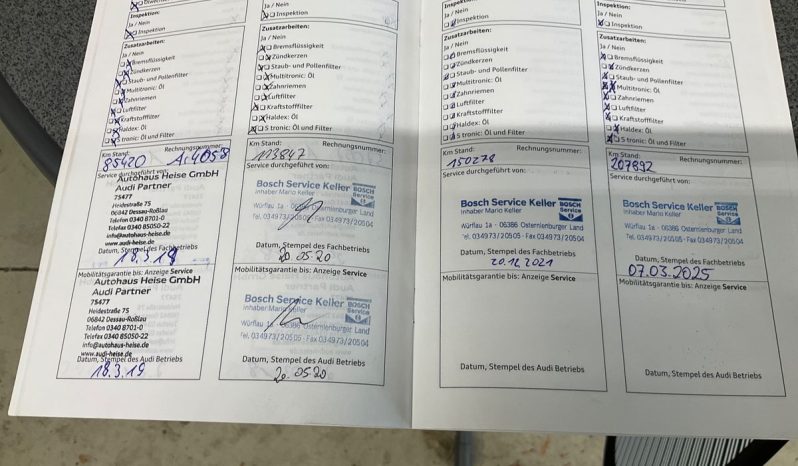 Inspektion:
Ja / Nein
Inspektion
Zusatzarbeiten:
Ja / Nein
Bremsflüssigkeit
Zündkerzen
Staub- und Pollenfilter
Multitronic: Öl
Zahnriemen
Luftfilter
Kraftstofffilter
Haldex: Öl
S tronic: Öl und Filter
Km Stand: Rechnungsnummer:
85420
Service durchgeführt von:
Autohaus Heise GmbH
Audi Partner
75477
Heidestraße 75
06842 Dessau-Roßlau
Telefon 0340 8701-0
Telefax 0340 85050-22
info@autohaus-heise.de
www.audi-heise.de
Datum, Stempel des Fachbetriebs
18.3.19
Mobilitätsgarantie bis: Anzeige Service
Autohaus Heise GmbH
Audi Partner
75477
Heidestraße 75
06842 Dessau-Roßlau
Telefon 0340 8701-0
Telefax 0340 85050-22
info@autohaus-heise.de
www.audi-heise.de
Datum, Stempel des Audi Betriebs
18.3.19
Ja / Nein
Inspektion
Zusatzarbeiten:
Ja / Nein
Bremsflüssigkeit
Zündkerzen
Staub- und Pollenfilter
Multitronic: Öl
Zahnriemen
Luftfilter
Kraftstofffilter
Haldex: Öl
S tronic: Öl und Filter
Km Stand: Rechnungsnummer:
113847
Service durchgeführt von:
Bosch Service Keller
Inhaber Mario Keller
BOSCH
Service
Würflau 1a · 06386 Osternienburger Land
Tel. 034973/20505 · Fax 034973/20504
Datum, Stempel des Fachbetriebs
20.05.20
Mobilitätsgarantie bis: Anzeige Service
Bosch Service Keller
Inhaber Mario Keller
BOSCH
Service
Würflau 1a · 06386 Osternienburger Land
Tel. 034973/20505 · Fax 034973/20504
Datum, Stempel des Audi Betriebs
20.05.20
Inspektion:
Ja / Nein
Inspektion
Zusatzarbeiten:
Ja / Nein
Bremsflüssigkeit
Zündkerzen
Staub- und Pollenfilter
Multitronic: Öl
Zahnriemen
Luftfilter
Kraftstofffilter
Haldex: Öl
S tronic: Öl und Filter
Km Stand: Rechnungsnummer:
150278
Service durchgeführt von:
Bosch Service Keller
Inhaber Mario Keller
BOSCH
Service
Würflau 1a · 06386 Osternienburger Land
Tel. 034973/20505 · Fax 034973/20504
Datum, Stempel des Fachbetriebs
20.12.2021
Mobilitätsgarantie bis: Anzeige Service
Datum, Stempel des Audi Betriebs
Ja / Nein
Inspektion
Zusatzarbeiten:
Ja / Nein
Bremsflüssigkeit
Zündkerzen
Staub- und Pollenfilter
Multitronic: Öl
Zahnriemen
Luftfilter
Kraftstofffilter
Haldex: Öl
S tronic: Öl und Filter
Km Stand: Rechnungsnummer:
207892
Service durchgeführt von:
Bosch Service Keller
Inhaber Mario Keller
BOSCH
Service
Würflau 1a · 06386 Osternienburger Land
Tel. 034973/20505 · Fax 034973/20504
Datum, Stempel des Fachbetriebs
07.03.2025
Mobilitätsgarantie bis: Anzeige Service
Datum, Stempel des Audi Betriebs